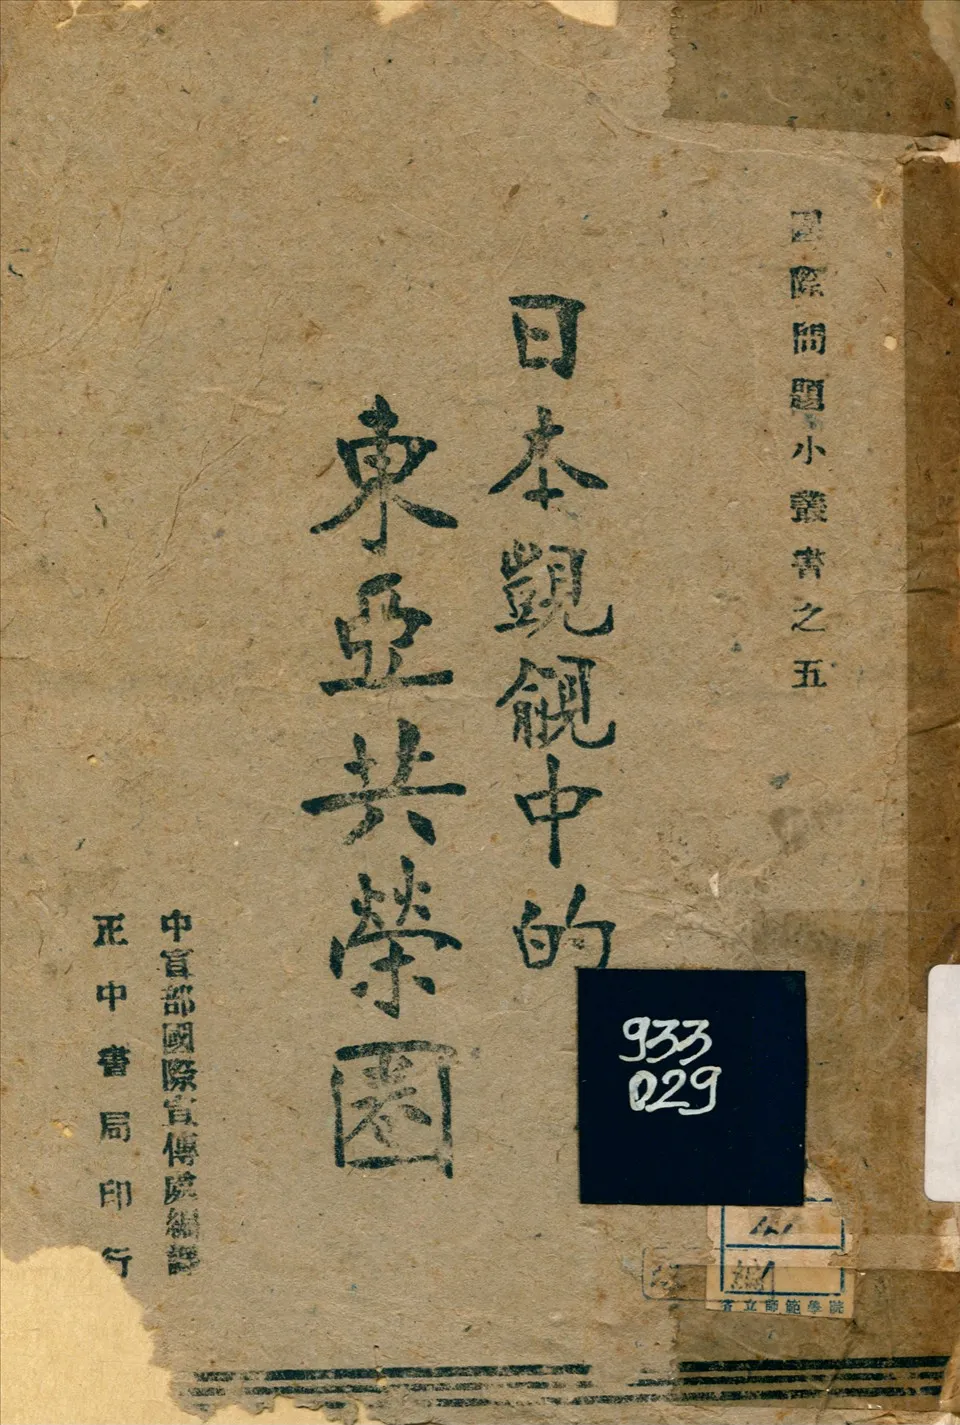 國際問題小叢書之五
日本覬覦中的
東亞共榮圈
中宣部國際宣傳處編譯
正中書局印行
933
029
省立師範學院